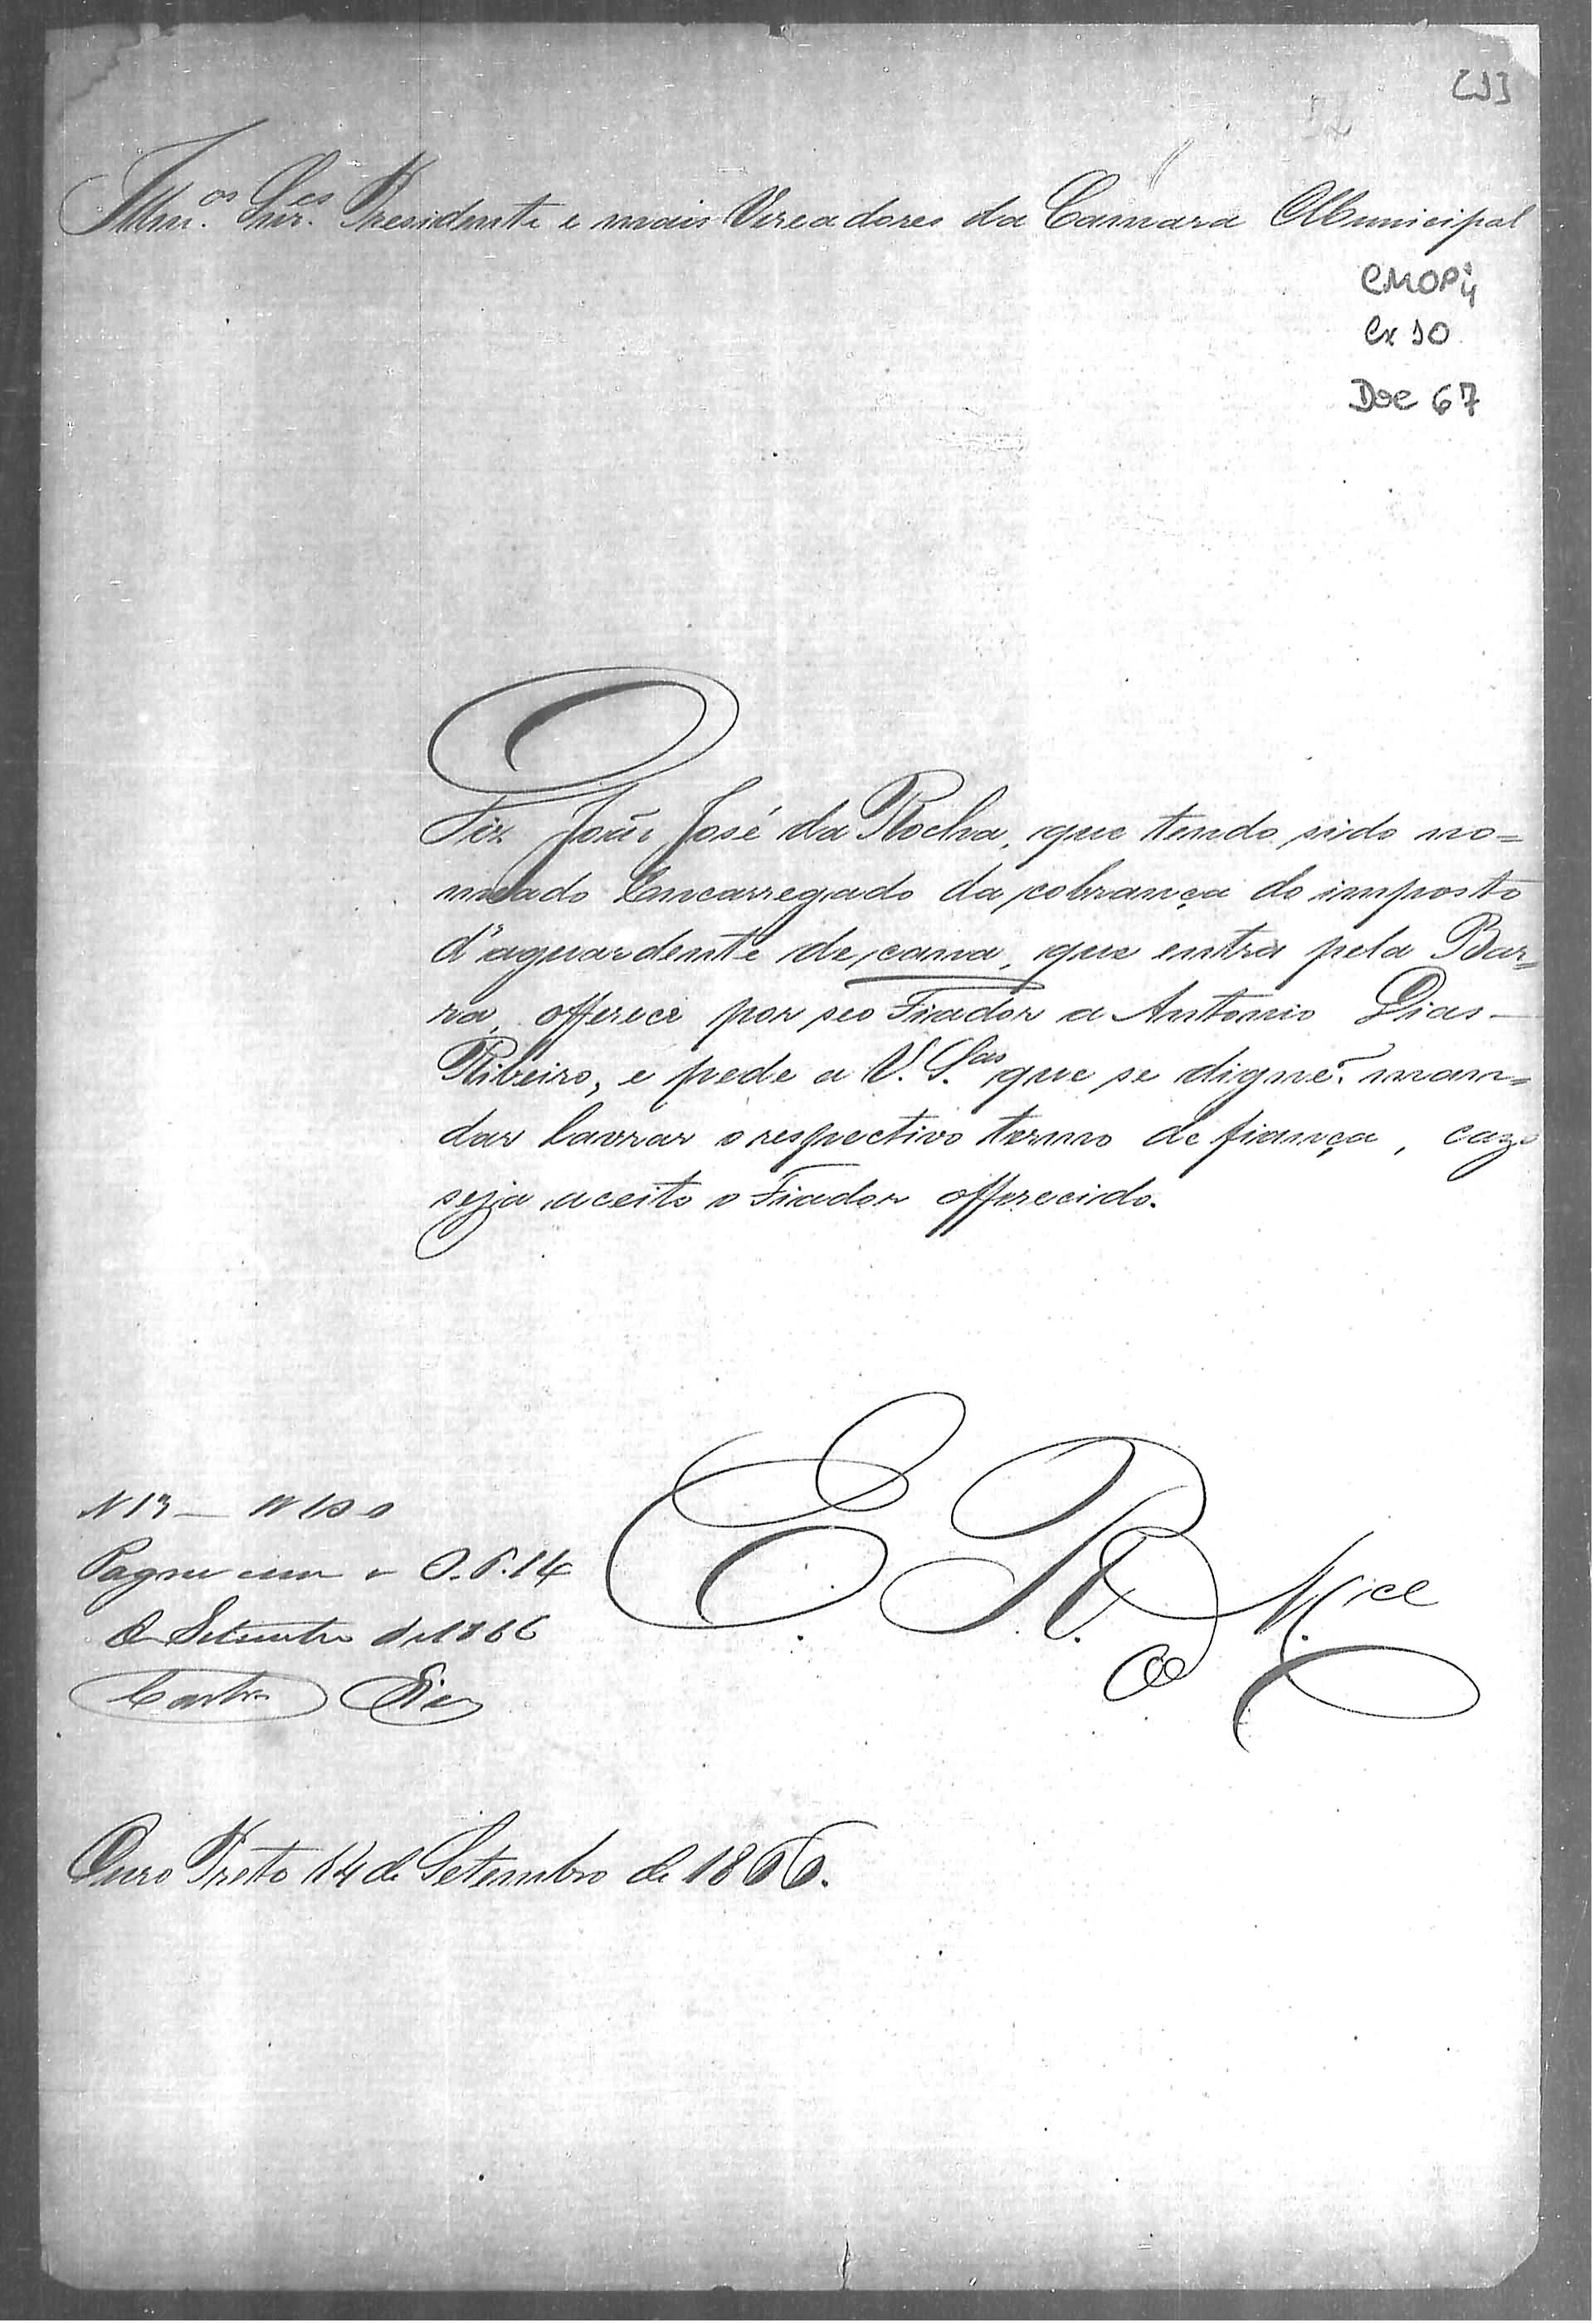 [1]
52
Illm.os Snr.es Presidente e mais Vereadores da Camara Municipal
CMOP 4
Cx 10
Doc 67
Diz João José da Rocha, que tendo sido no=
meado Encarregado da cobrança do imposto
d'aguardente de cana, que entra pela Bar=
ra, offerece por seo Fiador a Antonio Dias
Ribeiro, e pede a V. S.as que se digne~ man=
dar lavrar o respectivo termo de fiança, cazo
seja aceito o Fiador offerecido.
E. R. M.ce
N 13
Pagou cem r O. P. 14
de Setembro de 1866
Castro Dias
Ouro Preto 14 de Setembro de 1866.